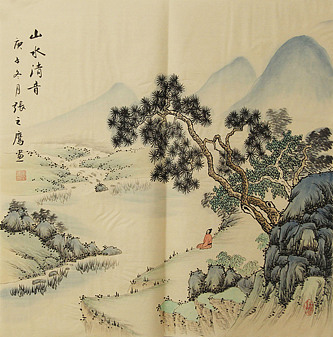 山水清音
庚子冬月張之鷹畫